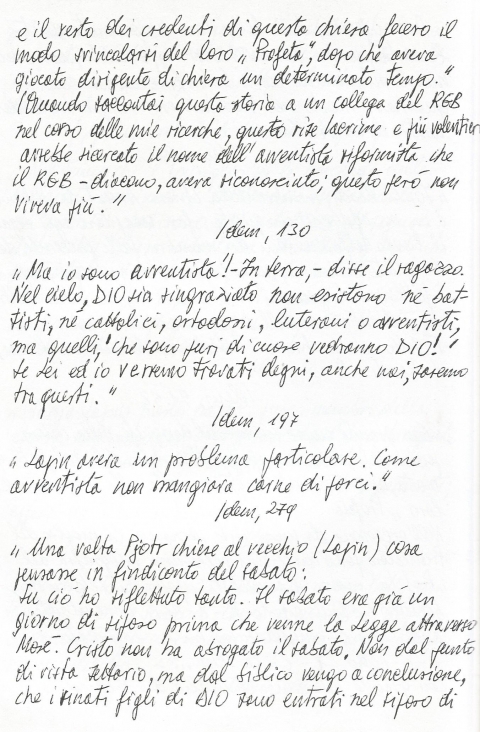 e il resto dei credenti di questa chiesa fecero il
modo svincolarsi del loro „Profeta", dopo che aveva
giocato dirigente di chiesa un determinato tempo."
(Quando raccontai questa storia a un collega del KGB
nel corso delle mie ricerche, questo rise lacrime e più volentieri
avrebbe ricercato il nome dell'avventista riformista che
il KGB - diacono, aveva riconosciuto; questo però non
viveva più."
Idem, 130
„Ma io sono avventista!- In terra,- disse il ragazzo.
Nel cielo, DIO sia ringraziato non esistono né bat-
tisti, né cattolici, ortodossi, luterani o avventisti,
ma quelli, che sono puri di cuore vedranno DIO!"
se sei ed io verremo trovati degni, anche noi, saremo
tra questi."
Idem, 197
„Lapin, aveva un problema particolare. Come
avventista non mangiava carne di porci."
Idem, 279
„Una volta Pjotr chiese al vecchio (Lapin) cosa
pensasse in findiconto del sabato:
Su ciò ho riflettuto tanto. Il sabato era già un
giorno di riposo prima che venne la Legge attraverso
Mosè. Cristo non ha abrogato il sabato. Non dal punto
di vista settario, ma dal biblico vengo a conclusione,
che i rinati figli di DIO sono entrati nel riposo di